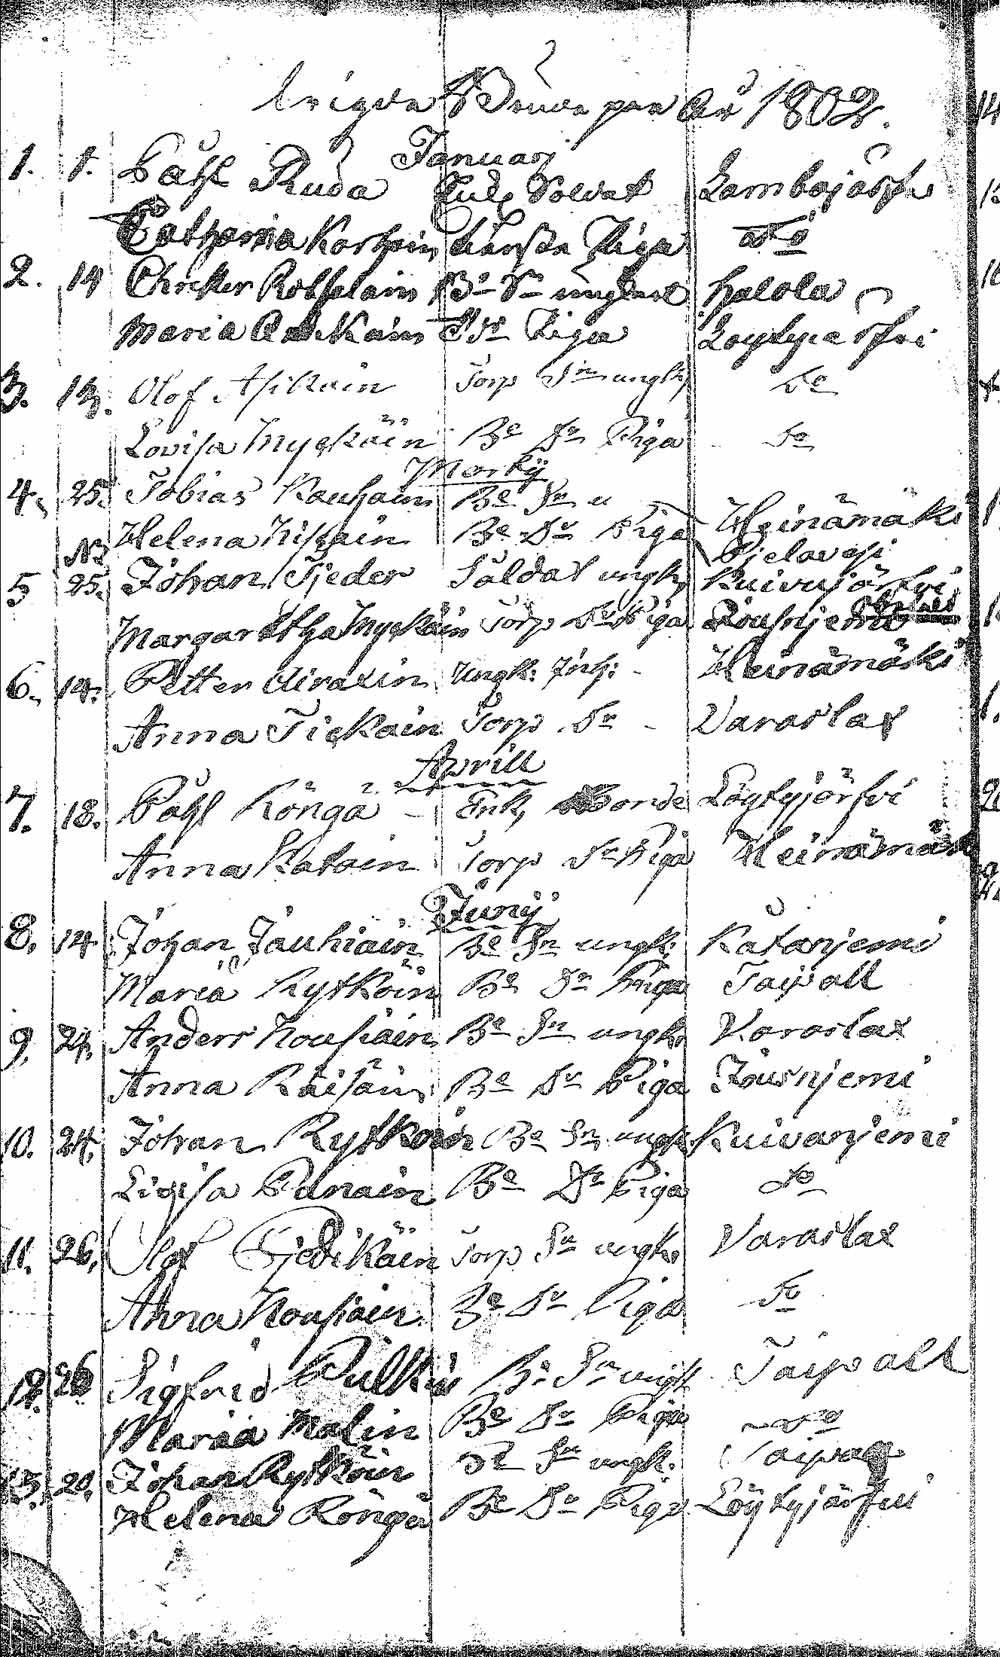 par år 1802.
Januarj
1. 1. Påhl Ruda Soldat Lambojärfvi
Catharina Piga do
2. 14 Christer Bde Sn ungkarl halola
Maria Piga Löytyiärfvi
3. 13. Olof Asikain Torp Sn ungk do
Lovisa Myckäin Bde Dr Piga do
Martij
4. 25. Tobias Kauhain Bde Sn u Heinämäki
Helena Hiskain Bde Dr Piga Pielavesi
5 25. Johan Tjeder Soldat ungk Kuivujärfvi
Margaretha Myckäin Torp Dr Piga
6. 14. Petter Mirakin Ungk: Inh: Heinämäki
Anna Tickain Torp Dr Varaslax
Aprill
7. 18. Påhl Köngä Enk, Bonde Löytyjärfvi
Anna Katain Torp Dr Piga Heinämäki
Junij
8. 14 Johan Jauhiain Bde Sn ungk: Katanjemi
Maria Rytköin Bde Dr Piga Taipall
9. 24. Anders Nousiain Bde Sn ungk Varaslax
Anna Räisäin Bde Dr Piga Jousnjemi
10. 24. Johan Rytköin Bde Sn ungk Kuivanjemi
Lisa Panain Bde Dr Piga do
11. 26. Olof Torp Sn ungk Varaslax
Anna Nousiain Bde Dr Piga do
12. 26 Sigfrid Pulkin Bde Sn ungk Taipall
Maria Malin Bde Dr Piga do
13. 20. Johan Rytköin Bde Sn ungk. Taipall
Helena Köngä Bde Dr Piga Löytyjärfvi